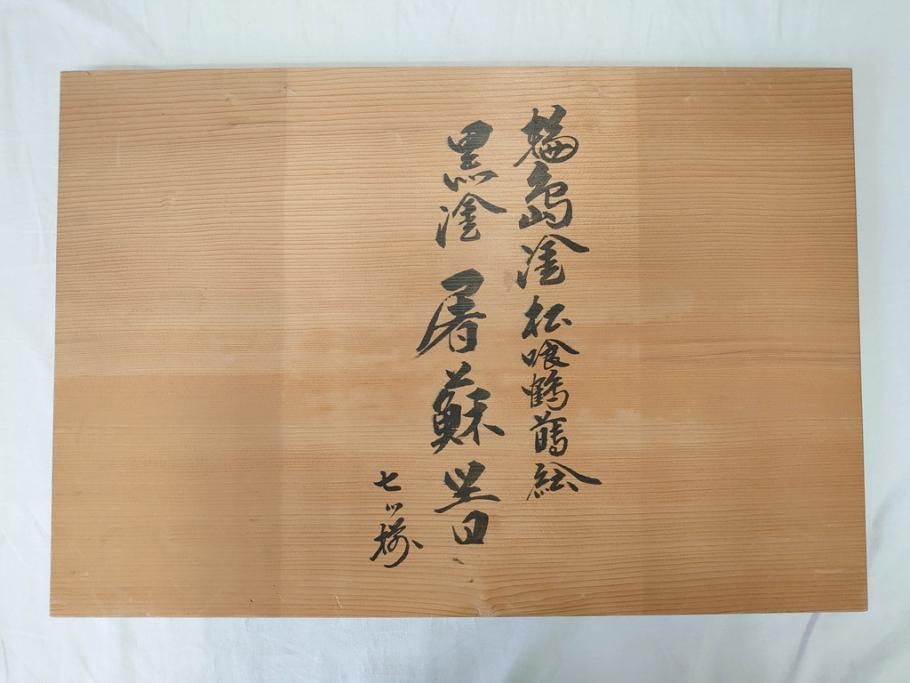 輪島塗 松喰鶴蒔絵
黒塗 屠蘇器
七ツ揃